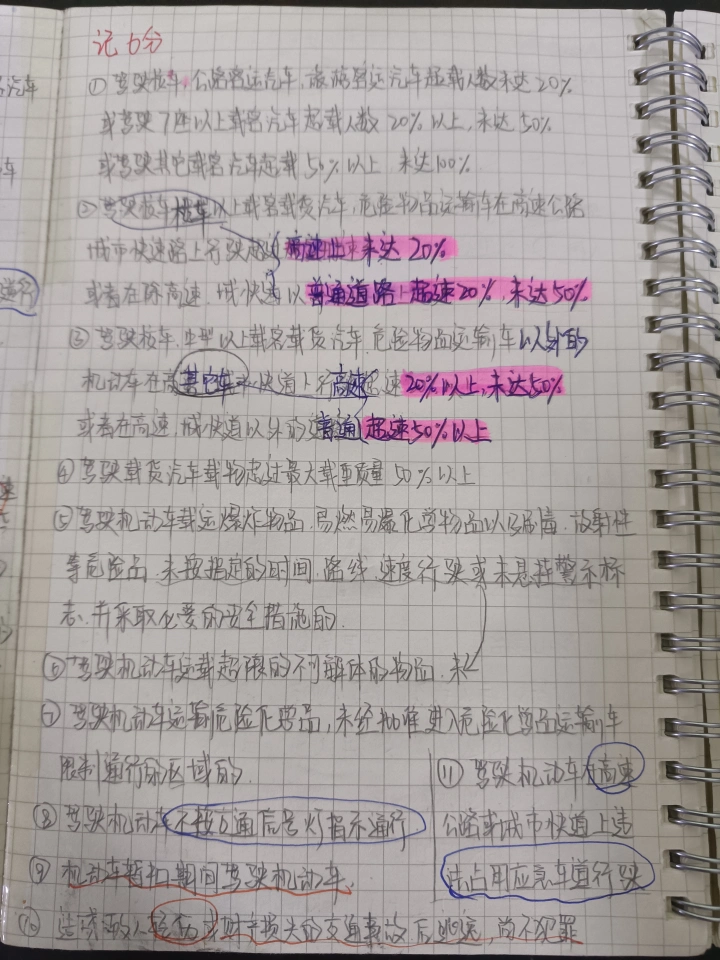 记6分
① 驾驶校车、公路客运汽车、旅游客运汽车超载人数未达20%
或驾驶7座以上载客汽车超载人数20%以上,未达50%
或驾驶其它载客汽车超载50%以上 未达100%
② 驾驶校车 校车 以上载客载货汽车、危险物品运输车在高速公路
城市快速路上行驶超速 未达20%
或者在除高速、城快速以 普通道路上超速20%,未达50%
③ 驾驶校车、中型以上载客载货汽车、危险物品运输车以外的
机动车在高 其它车 快道上行 高速 超速20%以上,未达50%
或者在高速、城快道以外的 普通 超速50%以上
④ 驾驶载货汽车载物超过最大载重质量50%以上
⑤ 驾驶机动车载运爆炸物品、易燃易爆化学物品以及剧毒、放射性
等危险品、未按指定的时间、路线、速度行驶或未悬挂警示标
志、并采取必要的安全措施的.
⑥ 驾驶机动车运载超限的不可解体的物品、未
⑦ 驾驶机动车运输危险化学品,未经批准进入危险化学品运输车
限制通行的区域的.
⑧ 驾驶机动车不按交通信号灯指示通行
⑨ 机动车暂扣期间驾驶机动车.
⑩ 造成致人轻伤或财产损失的交通事故后逃逸,尚不犯罪
⑪ 驾驶机动车在高速
公路或城市快道上违
法占用应急车道行驶